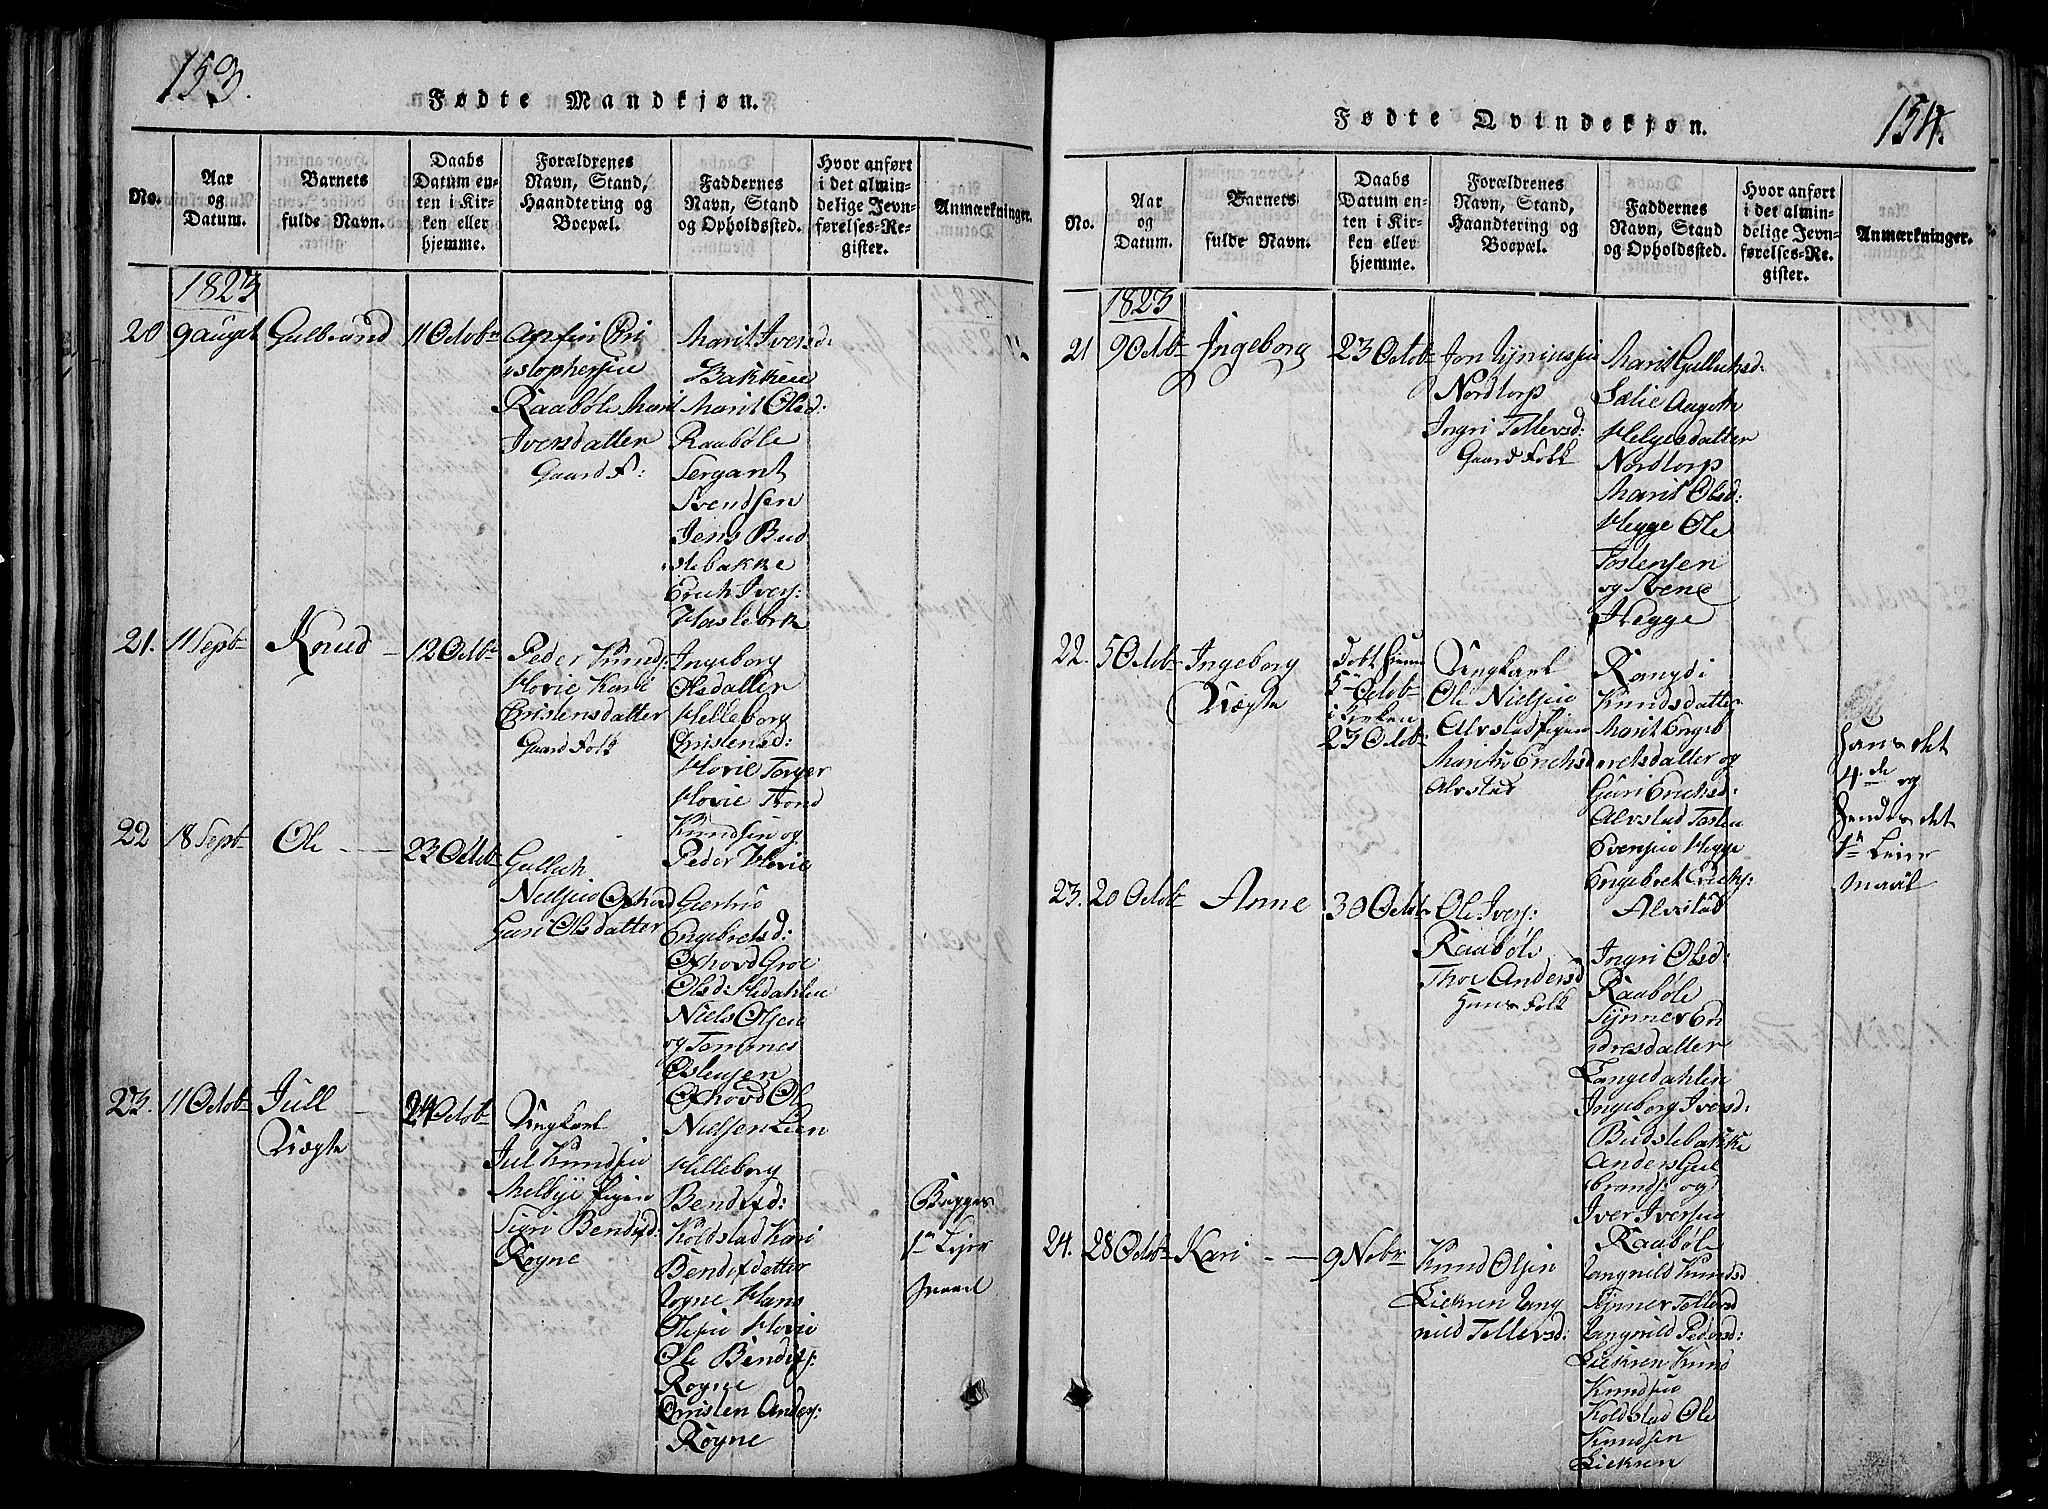 153.
Fødte Mandkjøn.
No.
Aar
og
Datum.
Barnets
fulde Navn.
Daabs
Datum en-
ten i Kir-
ken eller
hjemme.
Forældrenes
Navn, Stand,
Haandtering og
Boepæl.
Faddernes
Navn, Stand
og Opholdssted.
Hvor anført
i det almin-
delige Jevn-
førelses-Re-
gister.
Anmærkninger.
1823
20
9 August
Gulbrand
11 Octobr
Raabøle Marit
Iversdatter
Gaard F:
Marit Iversd:
Bakken
Marit Olsd:
Raabøle
Sergant
Svendsen
Jens Bud
slebakke
Erich Ivers:
21.
11 Septbr
Knud
12 Octbr
Peder Knuds:
Hovie Kari
Christensdatter
Gaard Folk
Ingeborg
Olsdatter
Helleborg
Christensd:
Hovie Torger
Hovie Trond
Knudsen og
Peder Hovie
22
18 Septbr
Ole
23 Octobr
Gullich
Nielsen
Guri Olsdatter
Giertrud
Engebretsd:
Groe
Olsd:
Niels Olsen
og Tommes
Ostensen
Ole
Nielsen Lien
23.
11 Octobr
Jull
Uægte
24 Octobr
Ungkarl
Jul Knudsen
Melbye Pigen
Sigri Bendixd:
Rogne
Helleborg
Bendixd:
Koldstad Kari
Bendixdatter
Rogne Hans
Olsen Hovie
Ole Bendix:
Rogne
Christen Anders:
Rogne
Begges
1te Leier
maal
154.
Fødte Qvindekjøn.
No.
Aar
og
Datum.
Barnets
fulde Navn.
Daabs
Datum en-
ten i Kir-
ken eller
hjemme.
Forældrenes
Navn, Stand,
Haandtering og
Boepæl.
Faddernes
Navn, Stand
og Opholdssted.
Hvor anført
i det almin-
delige Jevn-
førelses-Re-
gister.
Anmærkninger.
1823
21
9 Octobr
Ingeborg
23 Octobr
Nordtorp
Ingri Tollevsd:
Gaard Folk
Marit Gullichsd:
Sælie Aagoth
Helgesdatter
Nordtorp
Marit Olsd:
Hegge Ole
Tostensen
og Svend
Hegge
22.
5 Octobr
Ingeborg
Uægte
Døbt hjem
5te Octobr
i Kirken
23 Octobr
Ungkarl
Ole Nielsen
Alvstad Pigen
Marithe Erichsd
Alvstad
Rangdi
Knudsdatter
Marit Engeb
retsdatter og
Guri Erichsd:
Alvstad Tosten
Svensen Hegge
Engebret Erichs:
Alvstad
Hans det
4.de og
Hendes det
1te Leier
maal
23.
20 Octobr
Anne
30 Octobr
Ole Ivers:
Raabøle
Thor Andersd
Huus Folk
Ingri Olsd:
Raabøle
Synnev En
dresdatter
Langedahlen
Ingeborg Iversd:
Budslebakke
Anders Gul
brands: og
Iver Iversen
Raabøle
24.
28 Octobr
Kari
9 Nobr
Knud Olsen
Liekren Rang
nild Tollevsd:
Rangnild Knudsd
Synnev Tollevsd
Rangnild Pedersd:
Liekren Knud
Knudsen
Koldstad Ole
Knudsen
Liekren